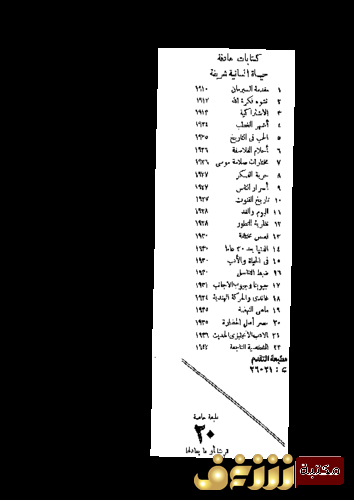 كتابات هادفة
حياة انسانية شريفة
١ مقدمة السبرمان ١٩١٠
٢ نشوء فكرة الله ١٩١٢
٣ الاشتراكية ١٩١٣
٤ أشهر الخطب ١٩٢٤
٥ الحب فى التاريخ ١٩٢٥
٦ أحلام الفلاسفة ١٩٢٦
٧ مختارات سلامة موسى ١٩٢٦
٨ حرية الفكر ١٩٢٧
٩ أسرار النفس ١٩٢٧
١٠ تاريخ الفنون ١٩٢٧
١١ اليوم والغد ١٩٢٨
١٢ نظرية التطور ١٩٢٨
١٣ قصص مختلفة ١٩٣٠
١٤ الدنيا بعد ٣٠ عاما ١٩٣٠
١٥ فى الحياة والأدب ١٩٣٠
١٦ ضبط التناسل ١٩٣٠
١٧ جيوبنا وجيوب الأجانب ١٩٣١
١٨ غاندى والحركة الهندية ١٩٣٤
١٩ ماهى النهضة ١٩٣٥
٢٠ مصر أصل الحضارة ١٩٣٥
٢١ الأدب الانجليزى الحديث ١٩٣٦
٢٢ الشخصية الناجعة
مطبعة التقدم
ت : ٢١-٢٦٠
طبعة خاصة
٢٠
قرشا أو ما يعادلها
مكتبة